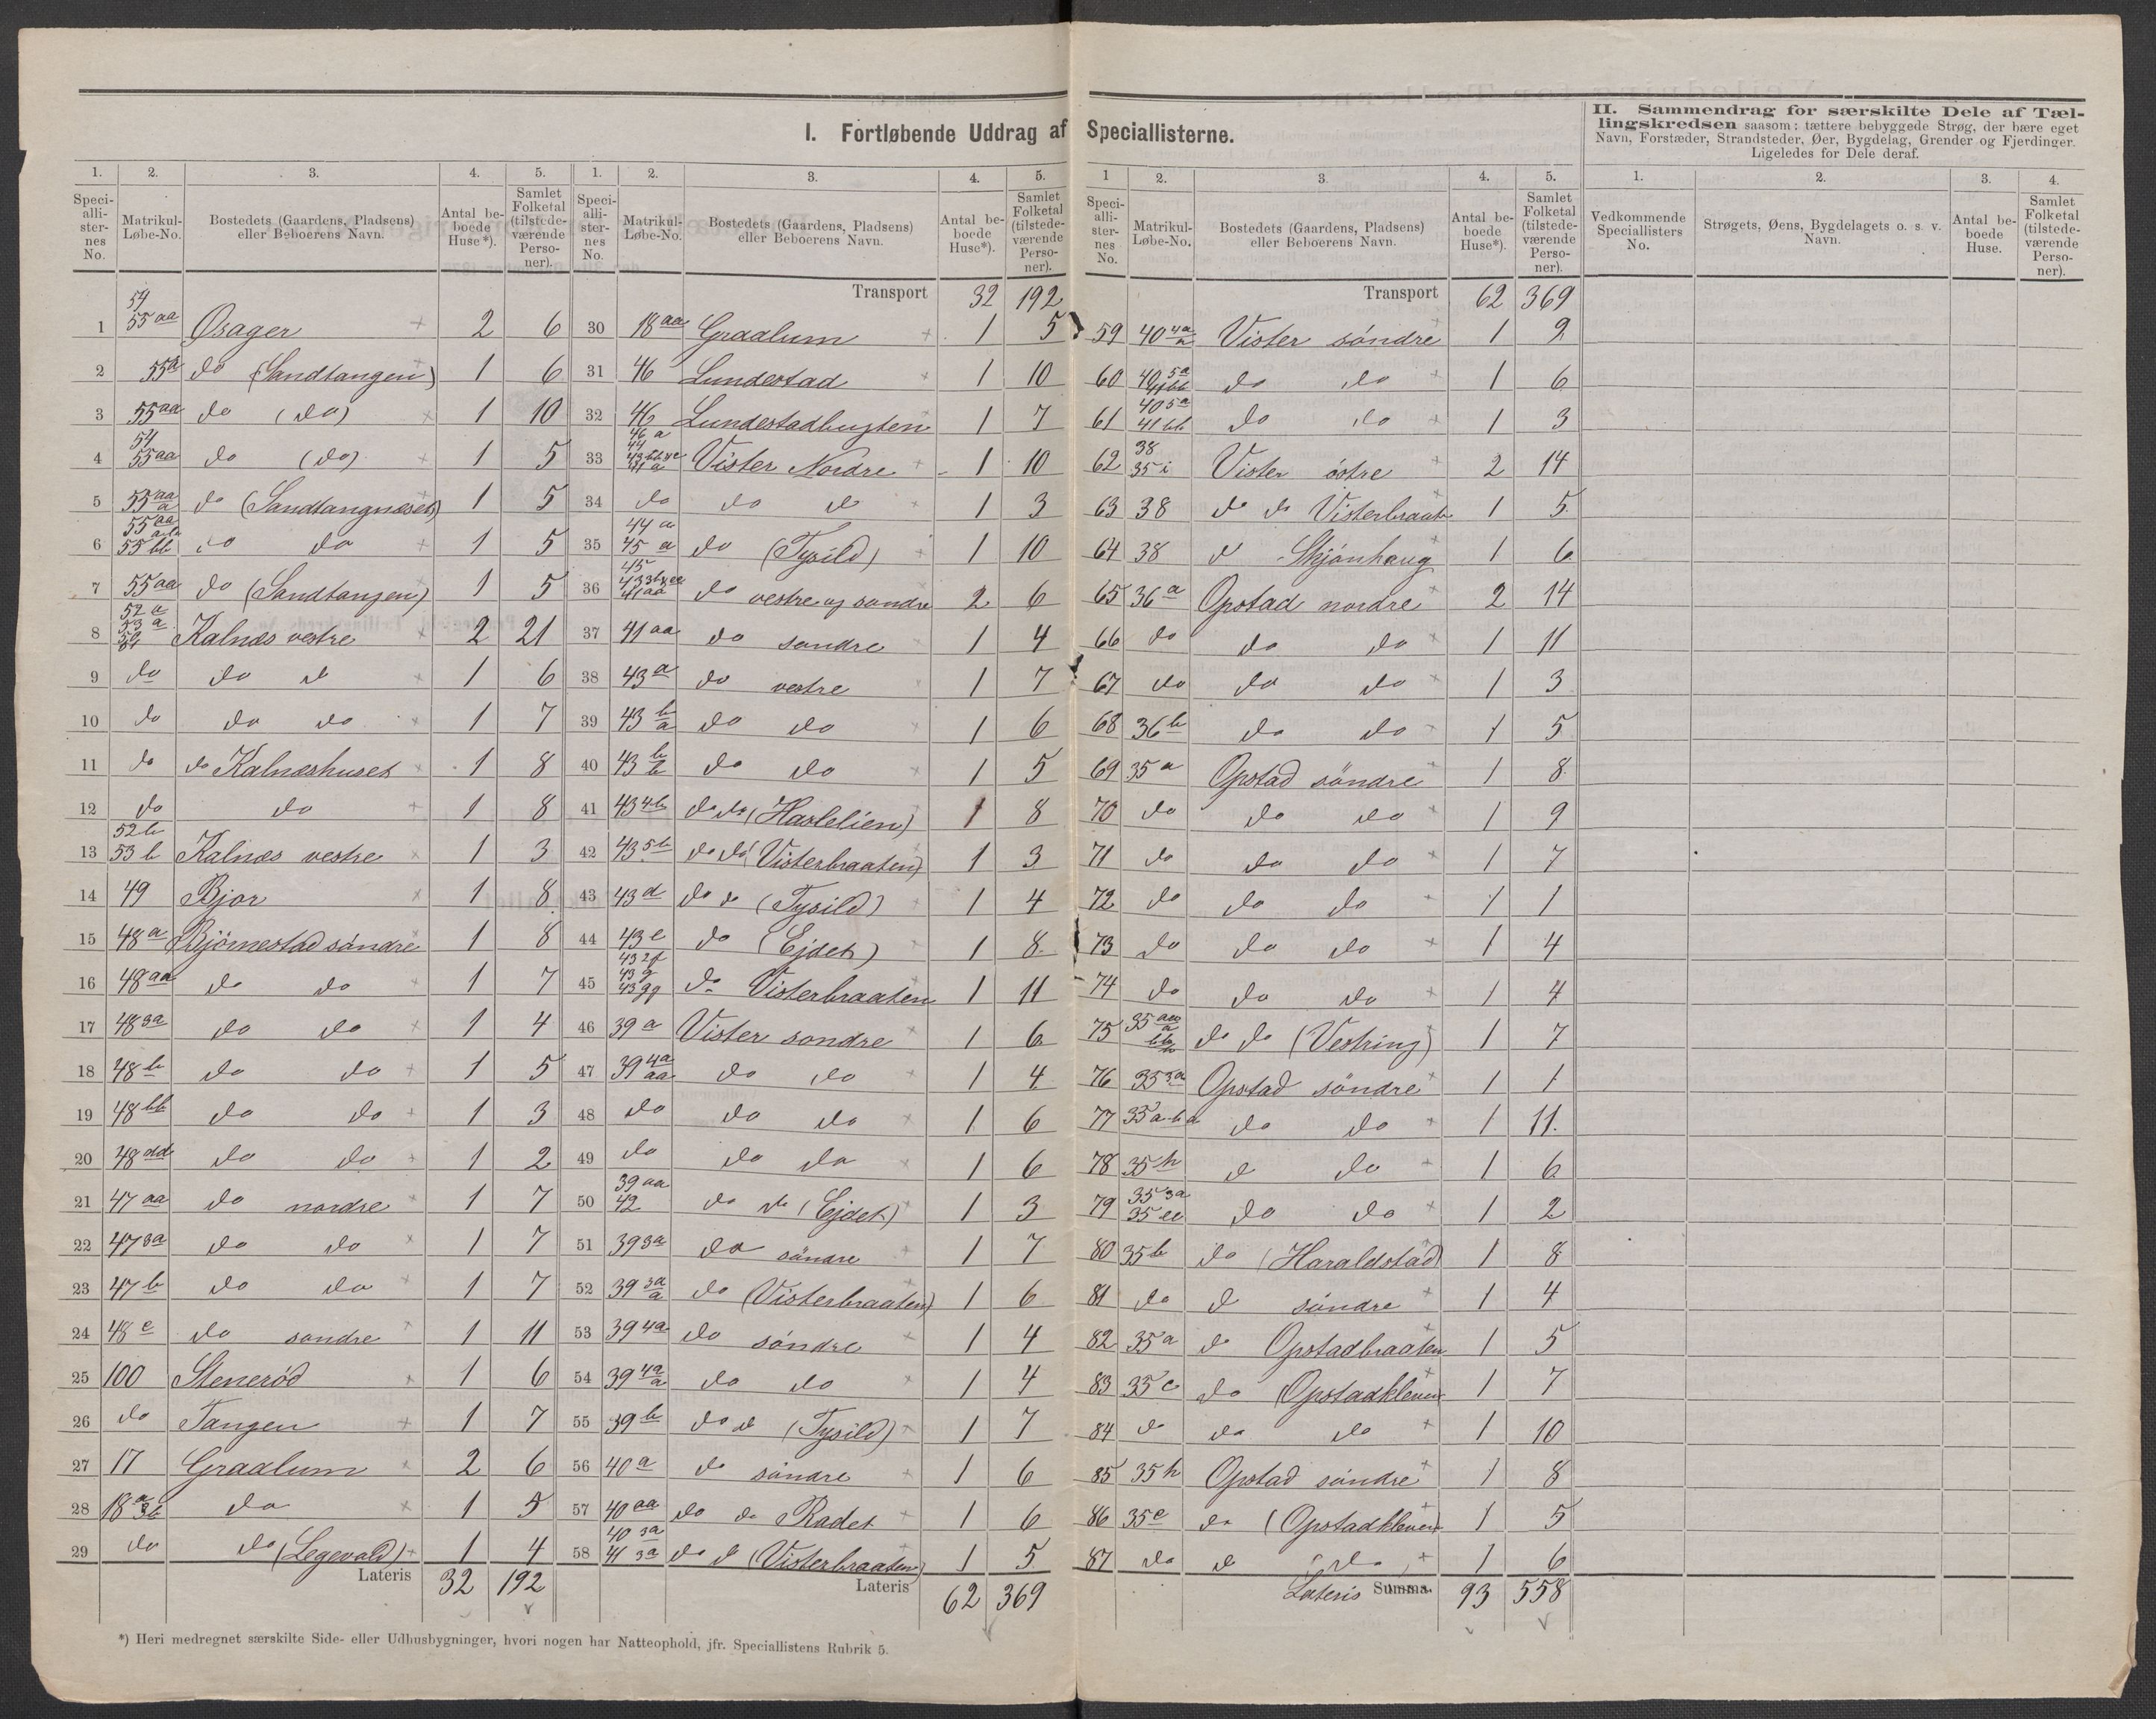 I. Fortløbende Uddrag af Speciallisterne.
II. Sammendrag for særskilte Dele af Tæl-
lingskredsen saasom: tættere bebyggede Strøg, der bære eget
Navn, Forstæder, Strandsteder, Øer, Bygdelag, Grender og Fjerdinger.
Ligeledes for Dele deraf.
1. 2. 3. 4. 5.
Speciallisternes No. | Matrikul-Løbe-No. | Bostedets (Gaardens, Pladsens) eller Beboerens Navn. | Antal beboede Huse*). | Samlet Folketal (tilstedeværende Personer).
1 | 54 55 aa | Øsager | 2 | 6
2 | 55 a | do (Sandtangen) | 1 | 6
3 | 55 aa | do (do) | 1 | 10
4 | 54 55 aa | do (do) | 1 | 5
5 | 55 aa a | do (Sandtangnæset) | 1 | 5
6 | 55 aa 55 bb | do do | 1 | 5
7 | 55 aa | do (Sandtangen) | 1 | 5
8 | 52 a 53 a | Kalnæs vestre | 2 | 21
9 | do | do d | 1 | 6
10 | do | do do | 1 | 7
11 | do | do Kalnæshuset | 1 | 8
12 | do | do | 1 | 8
13 | 52 b 53 b | Kalnæs vestre | 1 | 3
14 | 49 | Bjor | 1 | 8
15 | 48 a | Bjørnestad søndre | 1 | 8
16 | 48 aa | do do | 1 | 7
17 | 48 3a | do do | 1 | 4
18 | 48 b | do do | 1 | 5
19 | 48 bb | do do | 1 | 3
20 | 48 dd | do do | 1 | 2
21 | 47 aa | do nordre | 1 | 7
22 | 47 3a | do do | 1 | 7
23 | 47 b | do do | 1 | 7
24 | 48 e | do søndre | 1 | 11
25 | 100 | Stenerød | 1 | 6
26 | do | Tangen | 1 | 7
27 | 17 | Graalum | 2 | 6
28 | 18 a 3b | do | 1 | 5
29 | do | do (Legevold) | 1 | 4
Lateris 32 192
1. 2. 3. 4. 5.
Speciallisternes No. | Matrikul-Løbe-No. | Bostedets (Gaardens, Pladsens) eller Beboerens Navn. | Antal beboede Huse*). | Samlet Folketal (tilstedeværende Personer).
Transport 32 192
30 | 18 aa | Graalum | 1 | 5
31 | 46 | Lundestad | 1 | 10
32 | 46 | Lundestadbugten | 1 | 7
33 | 46 a 44 | Vister Nordre | 1 | 10
34 | do | do d | 1 | 3
35 | 44 a 45 a | do (Tysild) | 1 | 10
36 | 45 41 aa | do vestre og søndre | 2 | 6
37 | 41 aa | do søndre | 1 | 4
38 | 43 a | do vestre | 1 | 7
39 | 43 b a | do do | 1 | 6
40 | 43 b b | do do | 1 | 5
41 | 43 4b | do do (Haslelien) | 1 | 8
42 | 43 5b | do do (Visterbraaten) | 1 | 3
43 | 43 d | do do (Tysild) | 1 | 4
44 | 43 e | do (Ejdet) | 1 | 8
45 | 43 2f 43 g 43 gg | do Visterbraaten | 1 | 11
46 | 39 a | Vister søndre | 1 | 6
47 | 39 4a aa | do do | 1 | 4
48 | do | do do | 1 | 6
49 | do | do do | 1 | 6
50 | 39 aa 42 | do do (Ejdet) | 1 | 3
51 | 39 3a | do søndre | 1 | 7
52 | 39 3a a | do (Visterbraaten) | 1 | 6
53 | 39 4a | do søndre | 1 | 4
54 | 39 4a a | do do | 1 | 4
55 | 39 b | do d (Tysild) | 1 | 7
56 | 40 a | do søndre | 1 | 6
57 | 40 aa | do do Radet | 1 | 6
58 | 40 3a 41 3a | do d (Visterbraaten) | 1 | 5
Lateris 62 369
1 2. 3. 4. 5.
Speciallisternes No. | Matrikul-Løbe-No. | Bostedets (Gaardens, Pladsens) eller Beboerens Navn. | Antal beboede Huse*). | Samlet Folketal (tilstedeværende Personer).
Transport 62 369
59 | 40 4a a | Vister søndre | 1 | 2
60 | 40 5a 41 bb | do do | 1 | 6
61 | 40 5a 41 bb | do do | 1 | 3
62 | 38 35 i | Vister østre | 2 | 14
63 | 38 | do do Visterbraat | 1 | 5
64 | 38 | d Skjønhaug | 1 | 6
65 | 36 a | Opstad nordre | 2 | 14
66 | do | do do | 1 | 11
67 | do | do do | 1 | 3
68 | 36 b | do do | 1 | 5
69 | 35 a | Opstad søndre | 1 | 8
70 | do | do do | 1 | 9
71 | do | do do | 1 | 7
72 | do | do do | 1 | 1
73 | do | do do | 1 | 4
74 | do | do do | 1 | 4
75 | 35 aa a bb | do do (Vestring) | 1 | 7
76 | 35 3a | Opstad søndre | 1 | 1
77 | 35 a-b a | do do | 1 | 11
78 | 35 h | d do | 1 | 6
79 | 35 3a 35 ee | do do | 1 | 2
80 | 35 b | do (Haraldstad) | 1 | 8
81 | do | d søndre | 1 | 4
82 | 35 a | d Opstadbraaten | 1 | 5
83 | 35 c | do (Opstadkleven | 1 | 7
84 | do | do do | 1 | 10
85 | 35 h | Opstad søndre | 1 | 8
86 | 35 e | do (Opstadkleven) | 1 | 5
87 | do | d do | 1 | 6
Lateris Summa 93 558
1. 2. 3. 4.
Vedkommende Speciallisters No. | Strøgets, Øens, Bygdelagets o. s. v. Navn. | Antal beboede Huse. | Samlet Folketal (tilstedeværende Personer).
*) Heri medregnet særskilte Side- eller Udhusbygninger, hvori nogen har Natteophold, jfr. Speciallistens Rubrik 5.